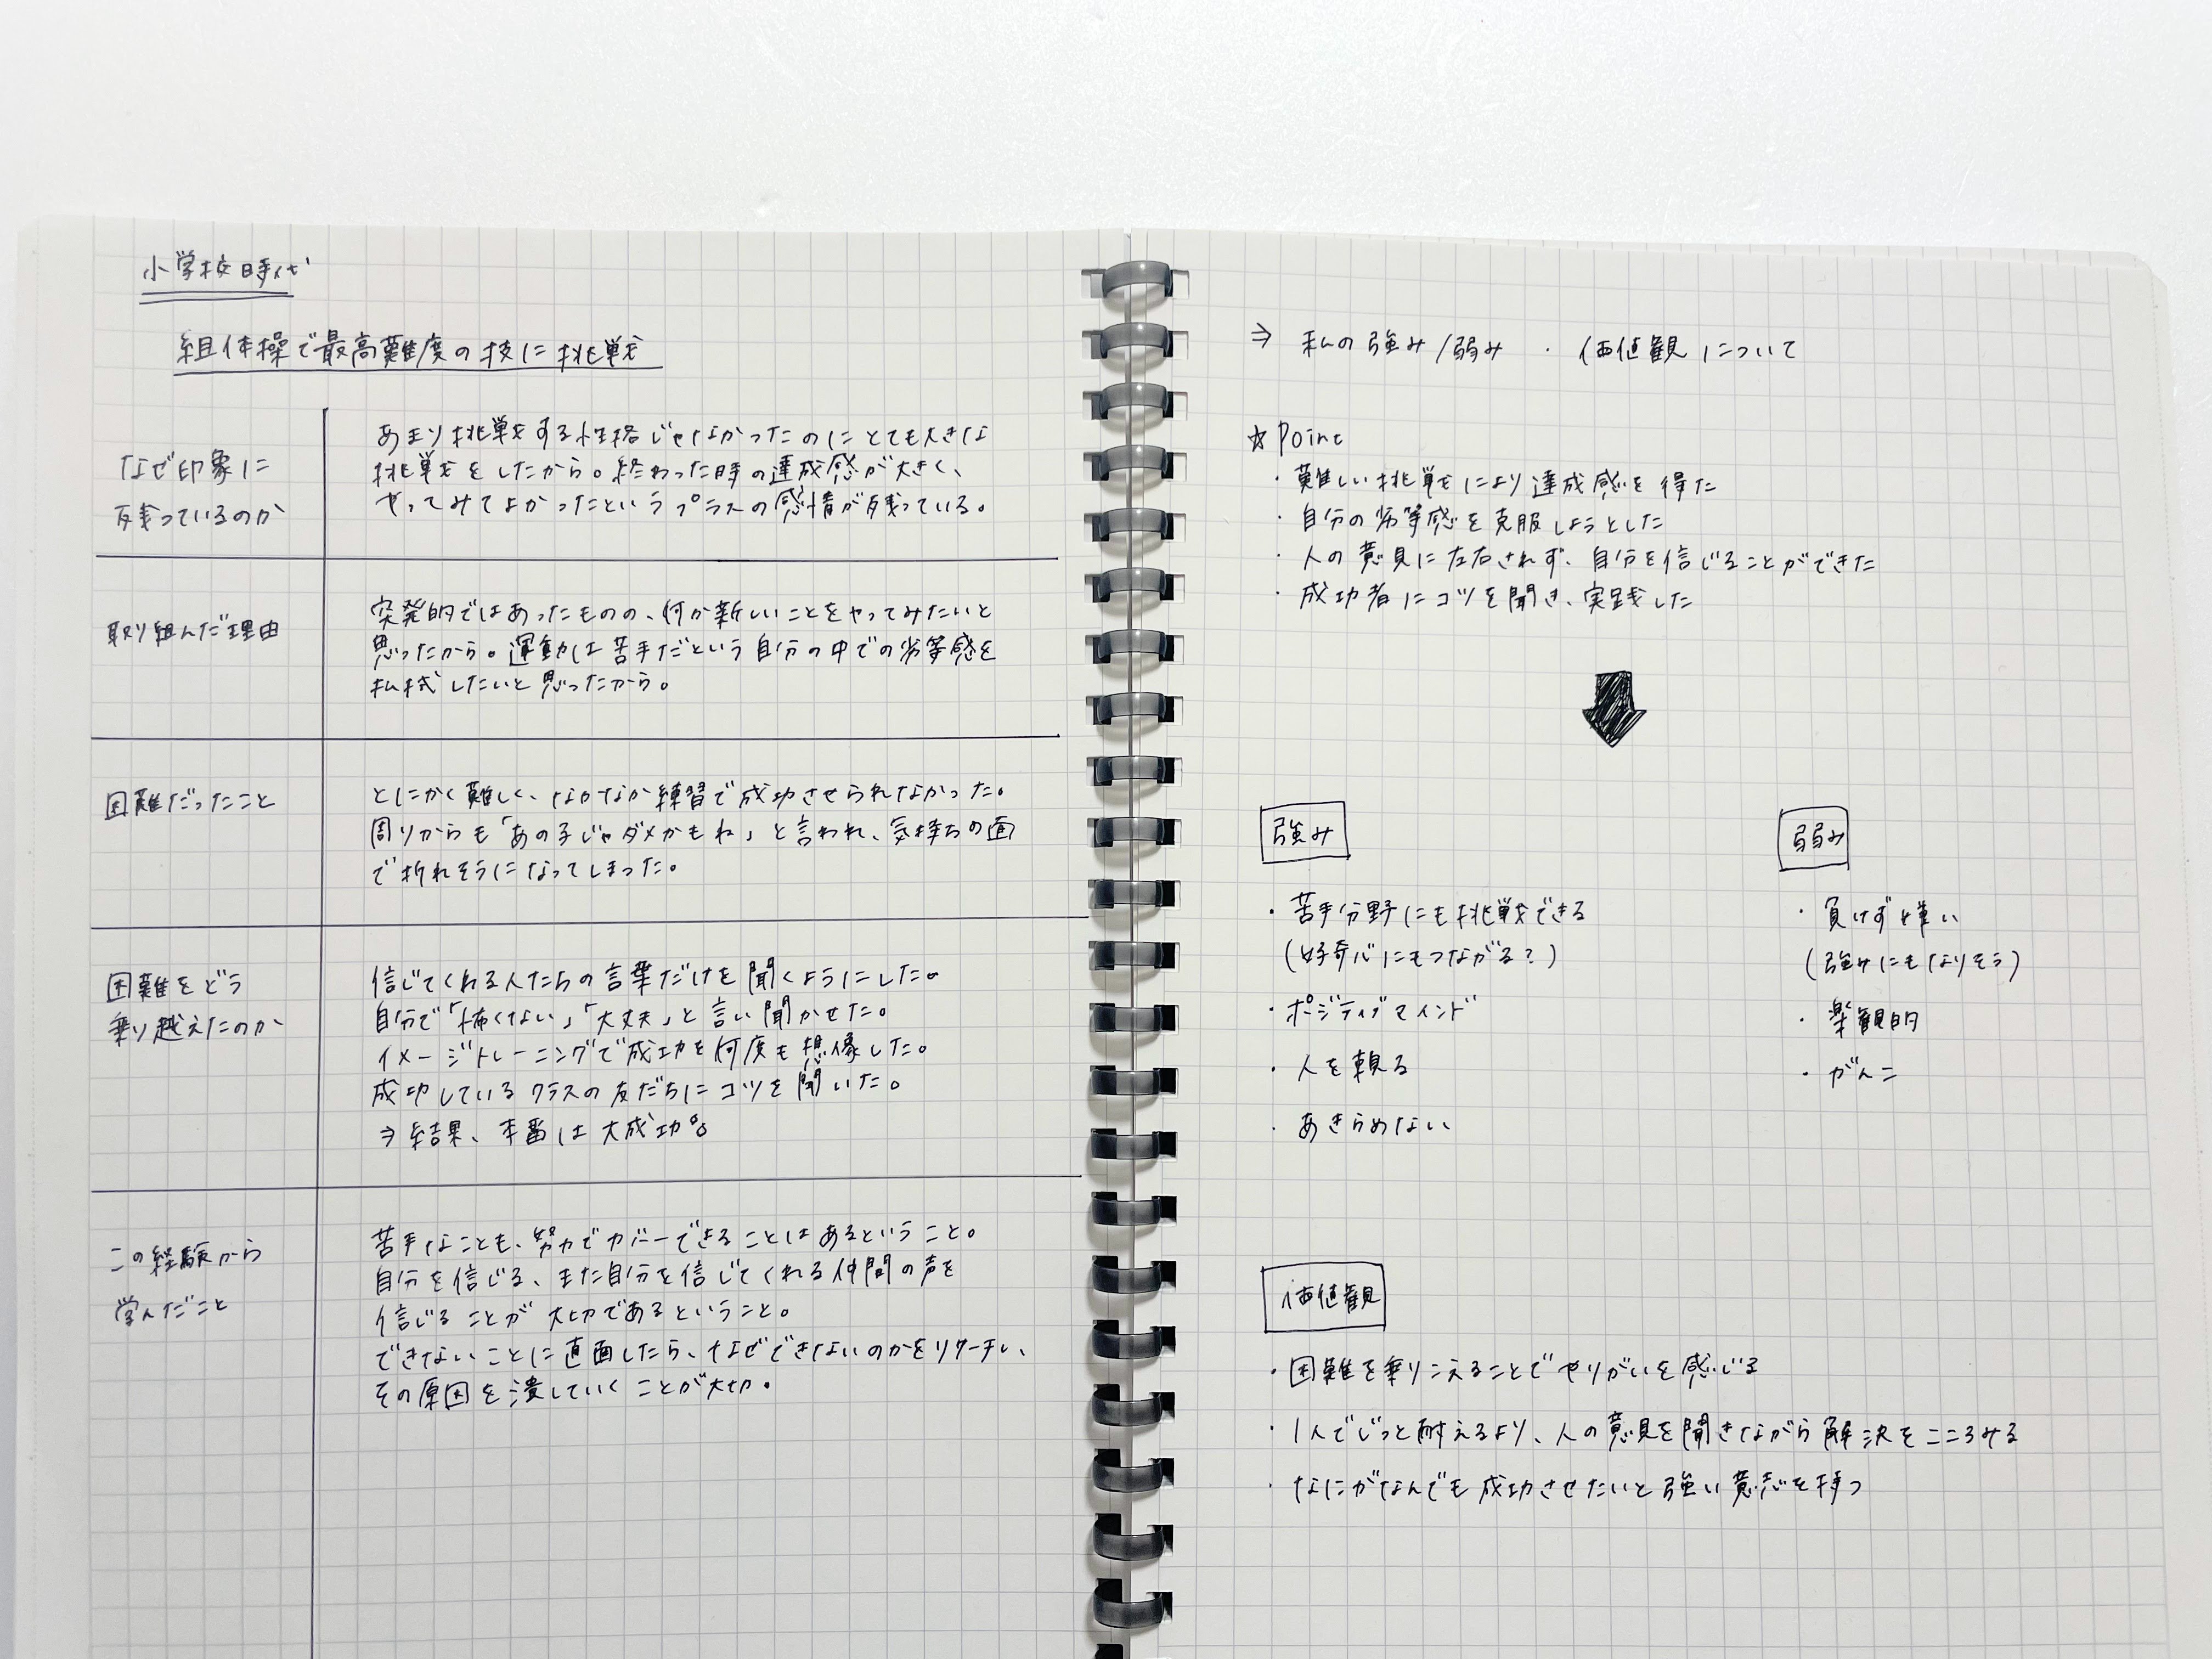 小学校時代
組体操で最高難度の技に挑戦
なぜ印象に
残っているのか
あまり挑戦する性格じゃなかったのにとても大きな
挑戦をしたから。終わった時の達成感が大きく、
やってみてよかったというプラスの感情が残っている。
取り組んだ理由
突発的ではあったものの、何か新しいことをやってみたいと
思ったから。運動は苦手だという自分の中での劣等感を
払拭したいと思ったから。
困難だったこと
とにかく難しく、なかなか練習で成功させられなかった。
周りからも「あの子じゃダメかもね」と言われ、気持ちの面
で折れそうになってしまった。
困難をどう
乗り越えたのか
信じてくれる人たちの言葉だけを聞くようにした。
自分で「怖くない」「大丈夫」と言い聞かせた。
イメージトレーニングで成功を何度も想像した。
成功しているクラスの友だちにコツを聞いた。
⇒ 結果、本番は大成功。
この経験から
学んだこと
苦手なことも、努力でカバーできることはあるということ。
自分を信じる、また自分を信じてくれる仲間の声を
信じることが大切であるということ。
できないことに直面したら、なぜできないのかをリサーチし、
その原因を潰していくことが大切。
⇒ 私の強み/弱み ・ 価値観について
☆Point
・難しい挑戦により達成感を得た
・自分の劣等感を克服しようとした
・人の意見に左右されず、自分を信じることができた
・成功者にコツを聞き、実践した
強み
・苦手分野にも挑戦できる
(好奇心にもつながる?)
・ポジティブマインド
・人を頼る
・あきらめない
弱み
・負けず嫌い
(強みにもなりそう)
・楽観的
・がんこ
価値観
・困難を乗りこえることでやりがいを感じる
・1人でじっと耐えるより、人の意見を聞きながら解決をこころみる
・なにがなんでも成功させたいと強い意志を持つ